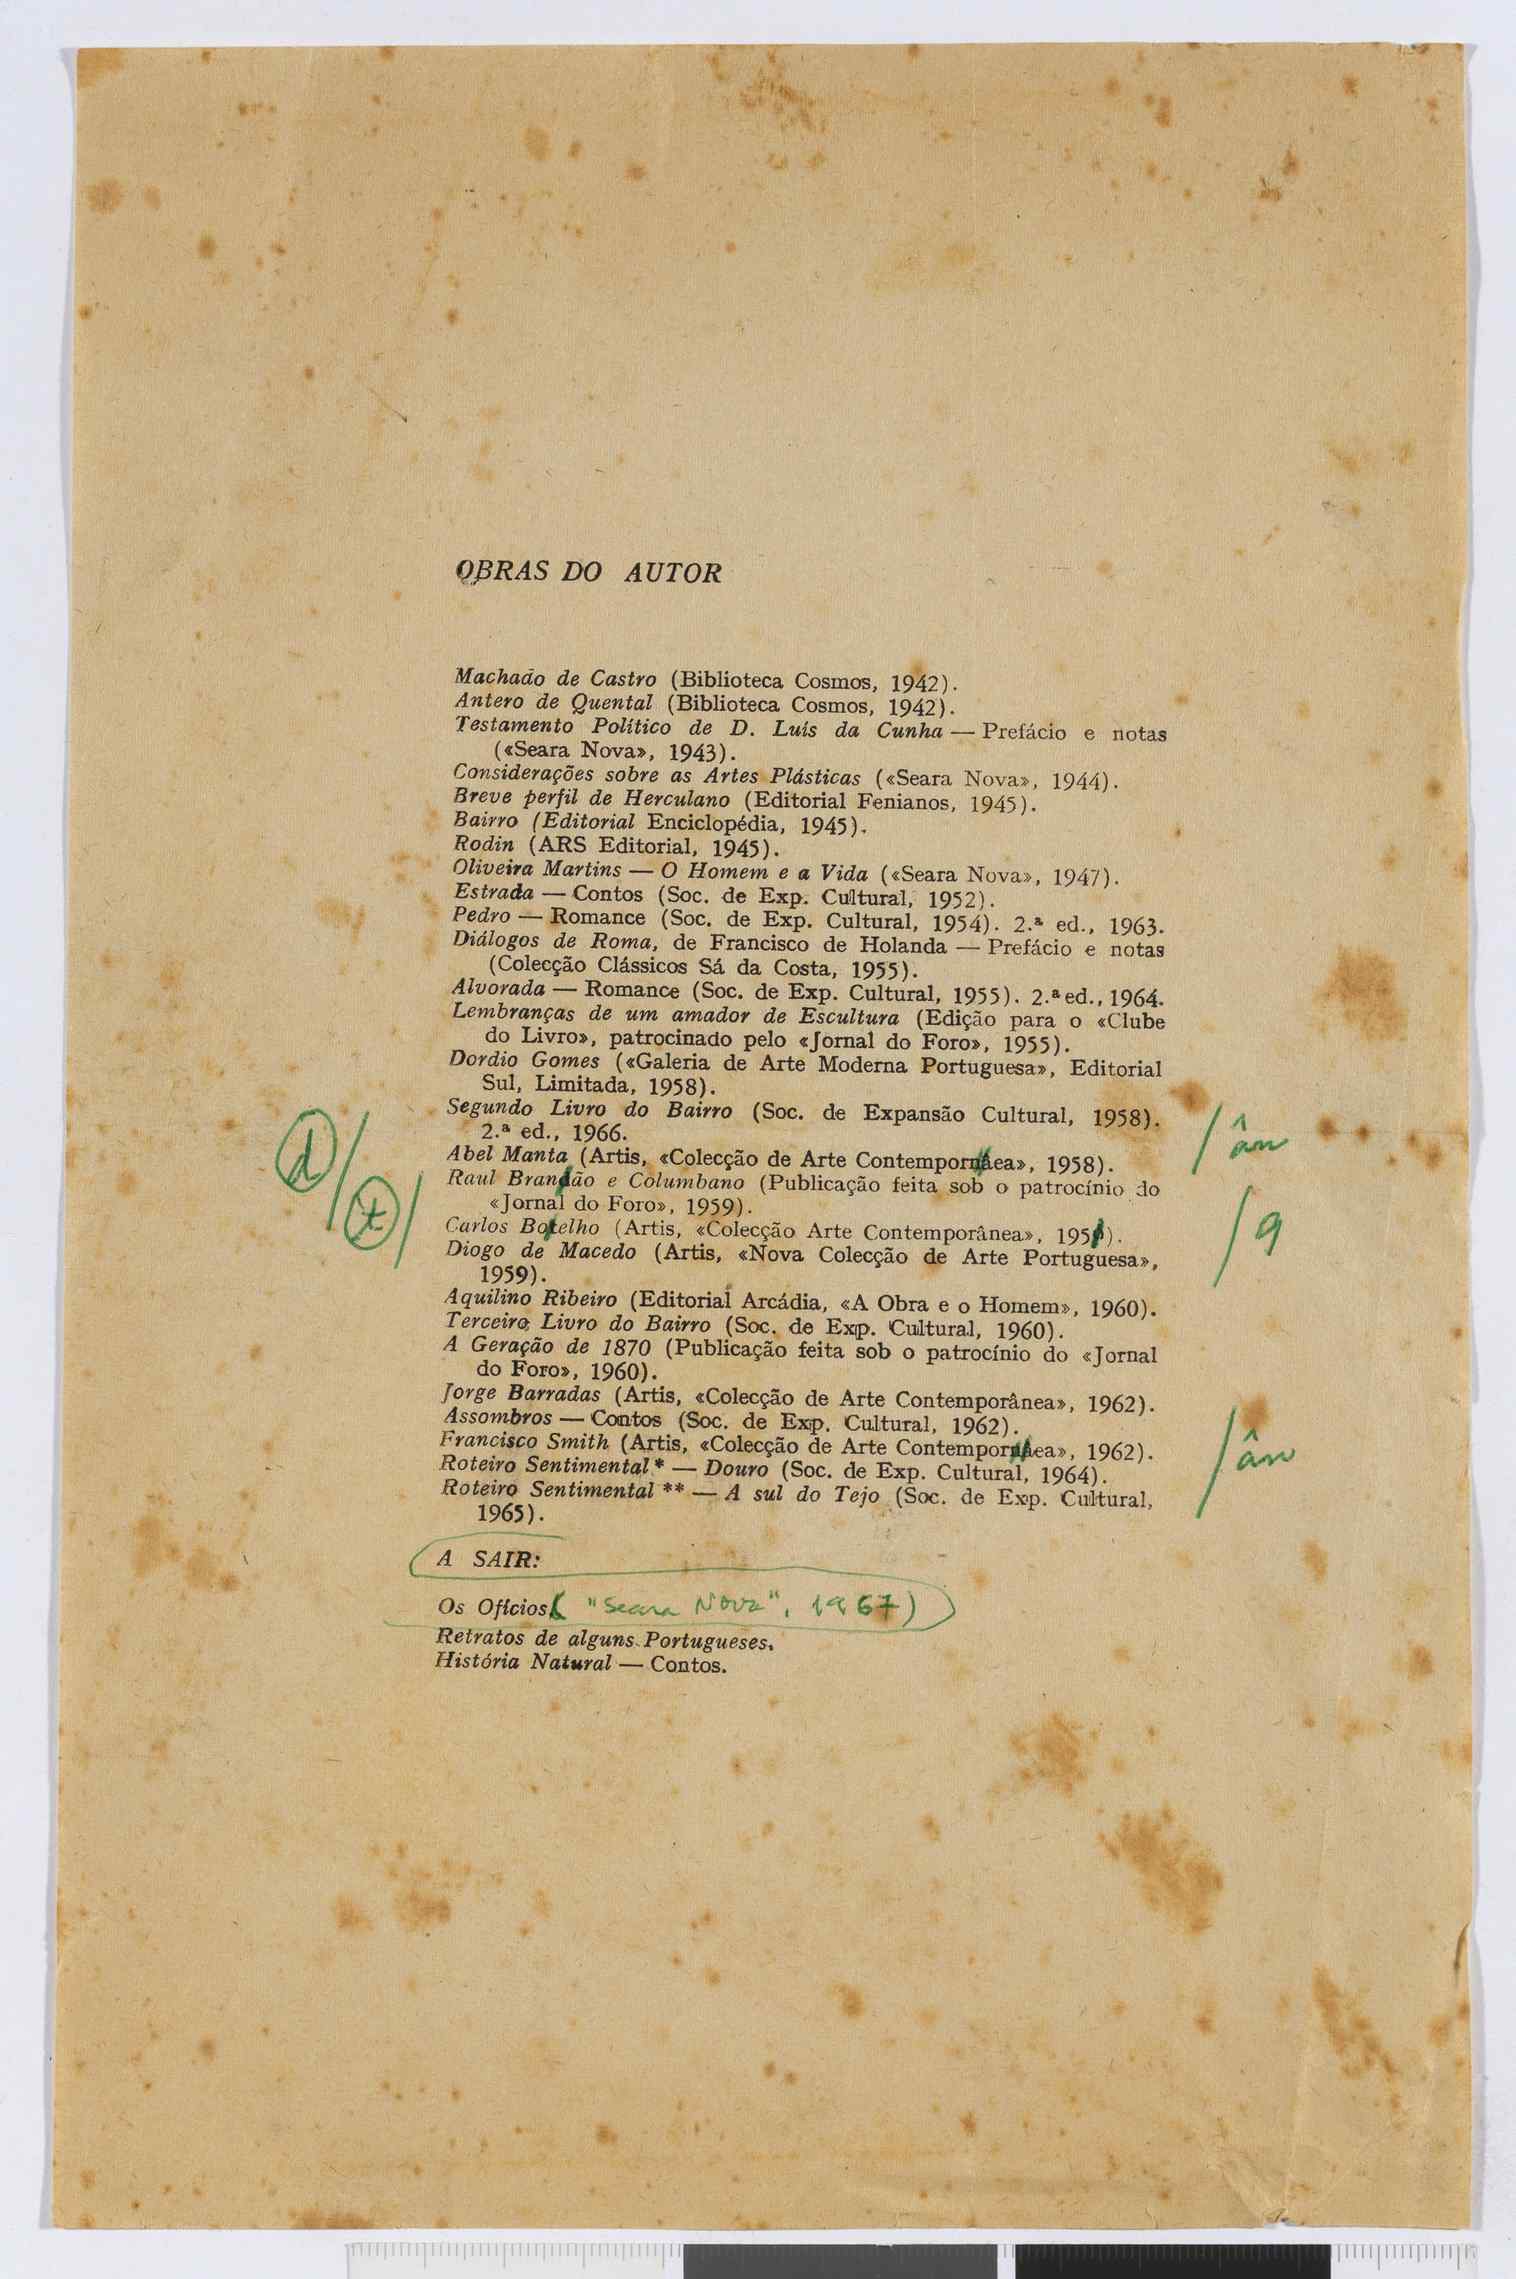 OBRAS DO AUTOR
Machado de Castro (Biblioteca Cosmos, 1942).
Antero de Quental (Biblioteca Cosmos, 1942).
Testamento Político de D. Luís da Cunha — Prefácio e notas
(«Seara Nova», 1943).
Considerações sobre as Artes Plásticas («Seara Nova», 1944).
Breve perfil de Herculano (Editorial Fenianos, 1945).
Bairro (Editorial Enciclopédia, 1945).
Rodin (ARS Editorial, 1945).
Oliveira Martins — O Homem e a Vida («Seara Nova», 1947).
Estrada — Contos (Soc. de Exp. Cultural, 1952).
Pedro — Romance (Soc. de Exp. Cultural, 1954). 2.ª ed., 1963.
Diálogos de Roma, de Francisco de Holanda — Prefácio e notas
(Colecção Clássicos Sá da Costa, 1955).
Alvorada — Romance (Soc. de Exp. Cultural, 1955). 2.ª ed., 1964.
Lembranças de um amador de Escultura (Edição para o «Clube
do Livro», patrocinado pelo «Jornal do Foro», 1955).
Dordio Gomes («Galeria de Arte Moderna Portuguesa», Editorial
Sul, Limitada, 1958).
Segundo Livro do Bairro (Soc. de Expansão Cultural, 1958).
2.ª ed., 1966.
Abel Manta (Artis, «Colecção de Arte Contempornâea», 1958). / ân
d / Raul Brandão e Columbano (Publicação feita sob o patrocínio do
«Jornal do Foro», 1959).
t / Carlos Botelho (Artis, «Colecção Arte Contemporânea», 195 ). / 9
Diogo de Macedo (Artis, «Nova Colecção de Arte Portuguesa»,
1959).
Aquilino Ribeiro (Editorial Arcádia, «A Obra e o Homem», 1960).
Terceiro Livro do Bairro (Soc. de Exp. Cultural, 1960).
A Geração de 1870 (Publicação feita sob o patrocínio do «Jornal
do Foro», 1960).
Jorge Barradas (Artis, «Colecção de Arte Contemporânea», 1962).
Assombros — Contos (Soc. de Exp. Cultural, 1962).
Francisco Smith (Artis, «Colecção de Arte Contempornâea», 1962). / ân
Roteiro Sentimental * — Douro (Soc. de Exp. Cultural, 1964).
Roteiro Sentimental ** — A sul do Tejo (Soc. de Exp. Cultural,
1965).
A SAIR:
Os Ofícios ("Seara Nova", 1967)
Retratos de alguns Portugueses.
História Natural — Contos.